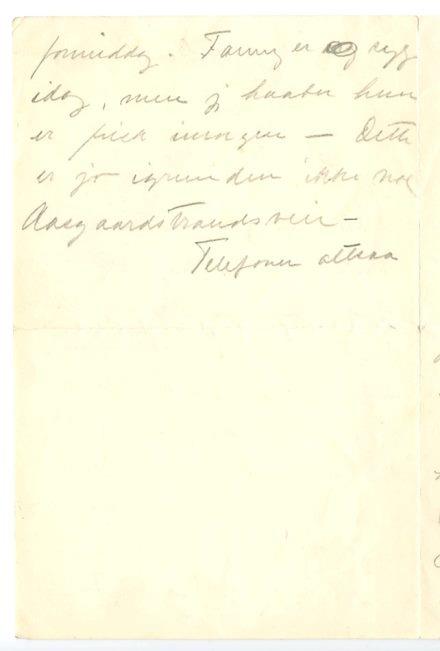 formiddag. Fanny er og syg
idag, men jeg haaber hun
er frisk imorgen — Dette
er jo igrunden ikke noe
Aasgaardstrandsveir —
Telefoner altsaa